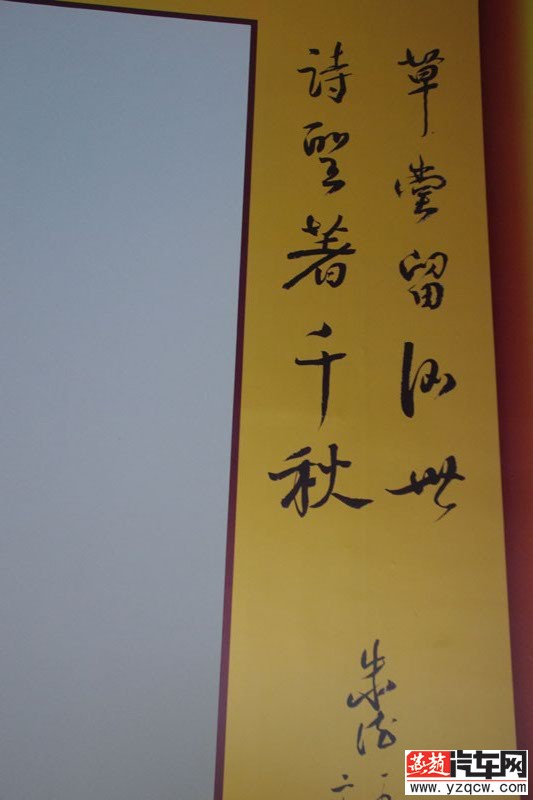 草堂留後世
詩聖著千秋
朱德
燕趙汽车网
www.yzqcw.com